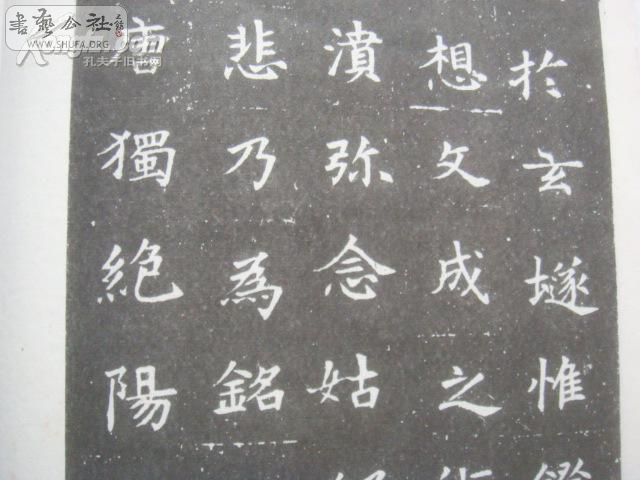 於玄墜惟
想文成之
潰弥念姑
悲乃為銘
獨絶陽
書藝公社
www.SHUFA.ORG
孔夫子旧书网